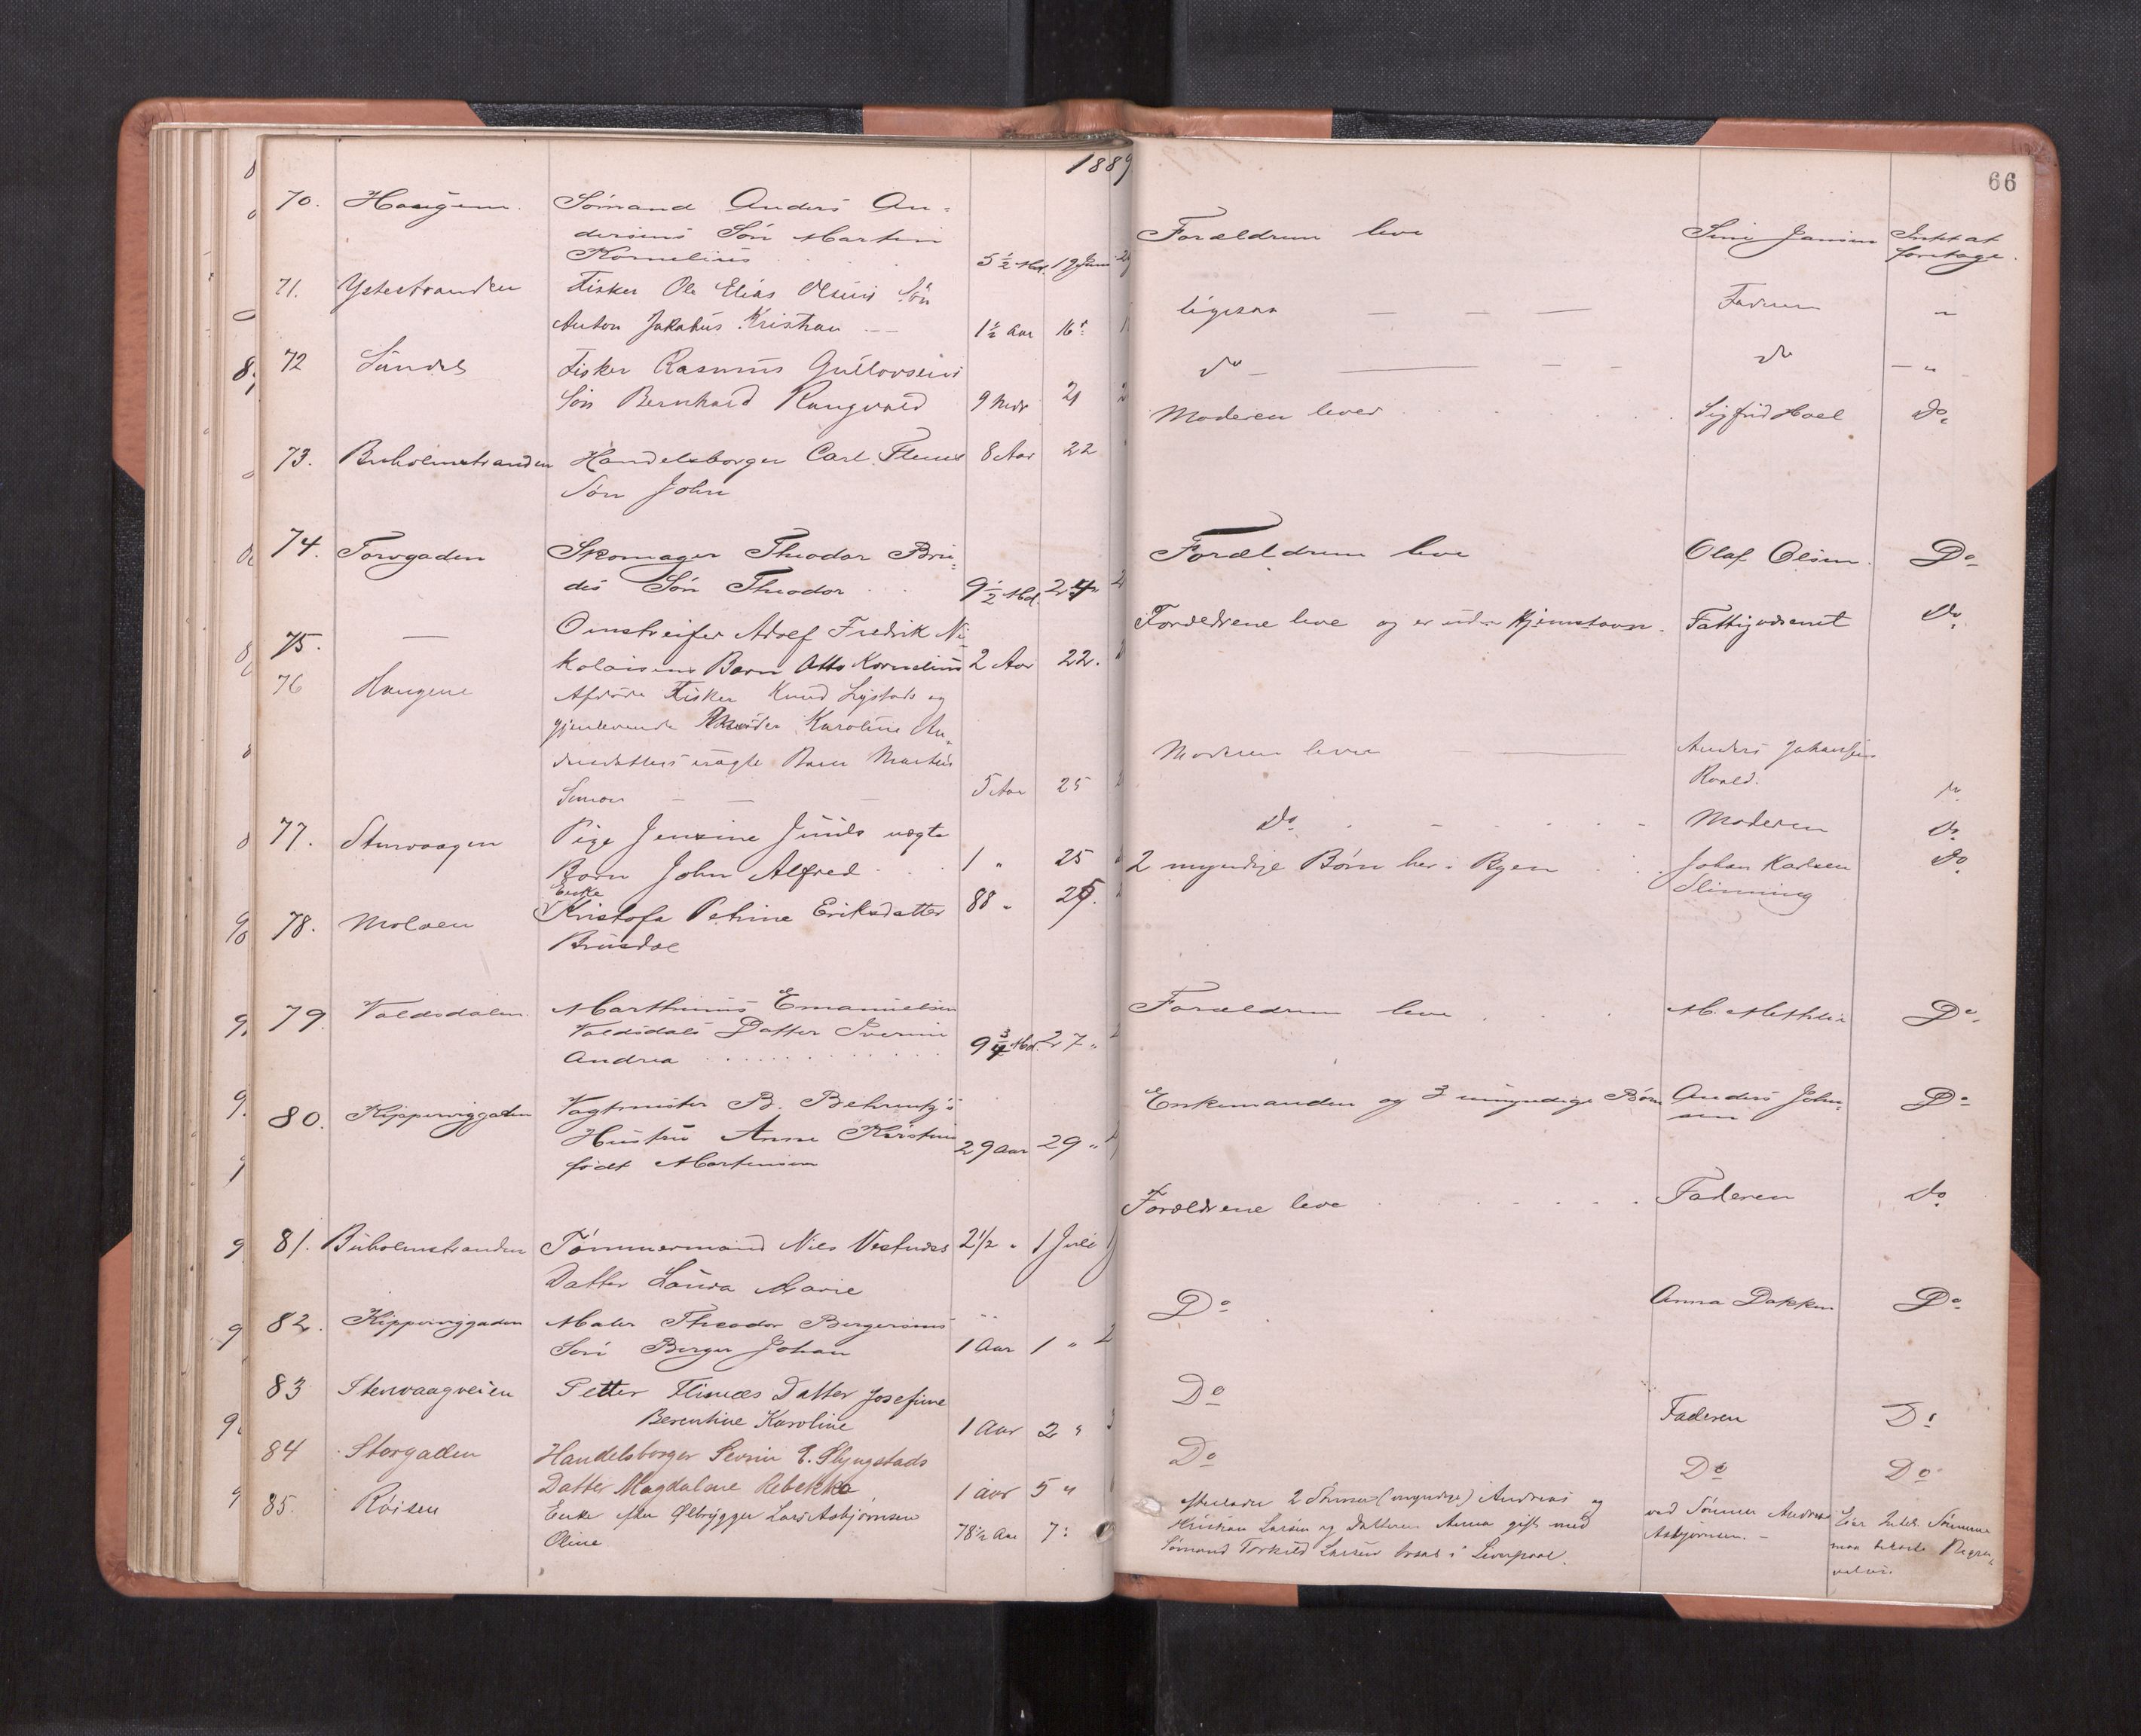 1889
66
70. Haugene. Sømand Anders An-
dersens Søn Martin
Kornelius 5 1/2 Md. 19 Juni
Forældrene leve Intet at
foretage.
71. Ysterstranden Fisker Ole Elias Olsens Søn
Anton Jakobus Kristian 1 1/2 Aar 16
ligesaa Faderen "
72 Sundet Fisker Rasmus Gullovsens
Søn Bernhard Rangvald 9 Mdr 21
do do "
73. Buholmstranden Handelsborger Carl 8 Aar 22
Søn John
Moderen lever Sigfrid Hoel Do
74. Torvgaden Skomager Theodor Bru-
des Søn Theodor 9 1/2 Md. 24 "
Forældrene leve Olaf Olsen. Do
75. — Omstreifer Adolf Fredrik Ni-
kolaisens Barn Otto Kornelius 2 Aar 22.
Forældrene leve og er uden Hjemstavn. Fattigvæsenet Do
76 Haugene Afdøde Fisker Knud og
gjenlevende Karoline An-
dersdatters uægte Barn Martin
Simon 5 Aar 25
Moderen lever Anders Johansen
Roald. Do
77. Stenvaagen Pige Jensine Juuls uægte
Barn John Alfred 1 " 25
Do Moderen Do
78. Molven Enke
Kristofa Petrine Eriksdatter 88 " 25.
Brusdal
2 myndige Børn her i Byen Johan Karlsen
Slinning Do
79. Valdsdalen Marthinus Emanuelsen
Valdsdals Datter Iverine
Andrea 9 3/4 Md. 27 "
Forældrene leve Do
80. Kipperviggaden Vagtmester B. Behrentz's
Hustru Anne Kirstine 29 Aar 29 "
født Martinsen
Enkemanden og 3 umyndige Børn Anders John-
sen Do
81. Buholmstranden Tømmermand Nils Vestnæs 2 1/2 " 1 Juli
Datter Laura Marie
Forældrene leve Faderen Do
82. Kipperviggaden Maler Theodor Bergersens
Søn Berger Johan 1 Aar 1 "
Do Anna Dokken Do
83 Stenvaagveien Petter Flisnæs Datter Josefine
Berentine Karoline 1 Aar 2 "
Do Faderen Do
84 Storgaden Handelsborger Severin E. Slyngstads
Datter Magdalene Rebekka 1 aar 5 "
Do Do Do
85. Røisen Enke efter Ølbrygger Lars Asbjørnsen
Oline 78 1/2 Aar 7
efterlader 2 Sønner (myndige) Andreas og
Kristian Larsen og Datteren Anna gift med
Sømand Torkild Larsen bosat i Liverpool.
ved Sønnen Andreas
Asbjørnsen. —
Eier Intet. Sønnerne
maa bekoste Begra-
velse.